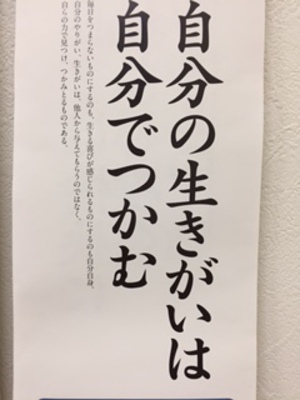 自分の生きがいは
自分でつかむ
毎日をつまらないものにするのも、生きる喜びが感じられるものにするのも自分自身。
自分のやりがい、生きがいは、他人から与えてもらうのではなく、
自らの力で見つけ、つかみとるものである。